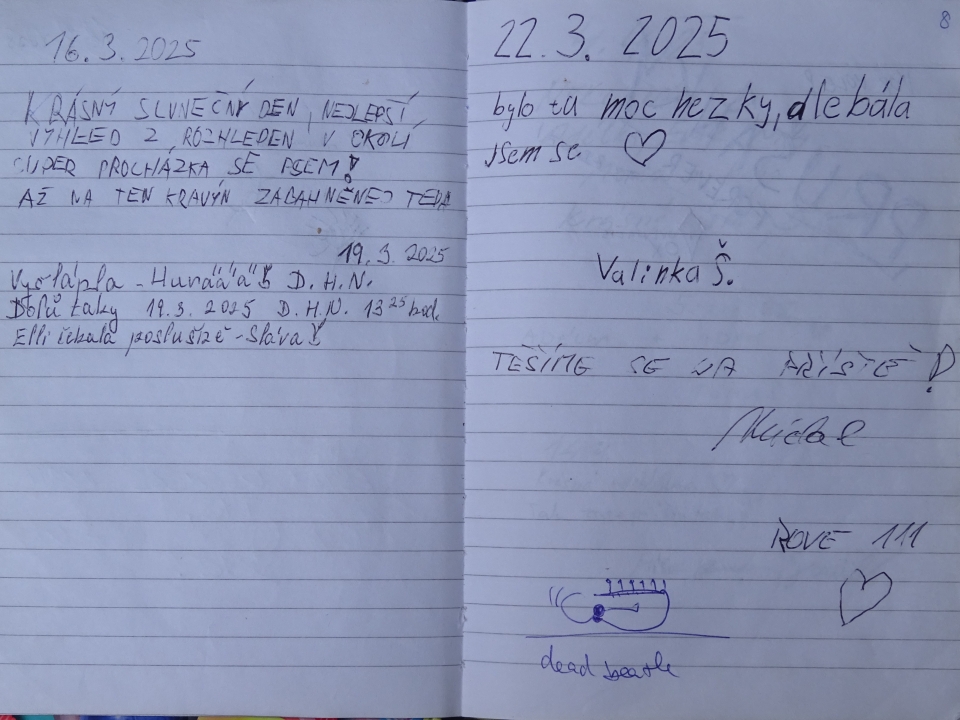 16. 3. 2025
KRÁSNÝ SLUNEČNÝ DEN, NEJLEPŠÍ
VÝHLED Z ROZHLEDEN V OKOLÍ,
SUPER PROCHÁZKA SE PSEM!
AŽ NA TEN KRAVÝN ZABAHNĚNEJ TEDA
19. 3. 2025
Vyšlápla - Hurááá! D. H. N.
Dolů taky 19. 3. 2025 D. H. N. 13 25 hod.
Elli čekala poslušně - Sláva!
8
22. 3. 2025
bylo tu moc hezky, ale bála
jsem se ♡
Valinka Š.
TĚŠÍME SE NA PŘÍŠTĚ!
Michal
ROVE 111
dead beatle